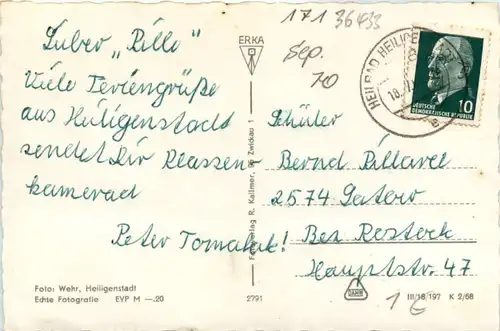 Lieber "Pille"
Viele Feriengrüße
aus Heiligenstadt
sendet Dir Klassen-
kamerad
Peter Tomalak!
Foto: Wehr, Heiligenstadt
Echte Fotografie EVP M —.20
ERKA
Foto-Verlag R. Kallmer, 95 Zwickau 1
2791
171 36433
Sep.
70
HEILBAD HEILIGE
18.
DEUTSCHE
DEMOKRATISCHE REPUBLIK
10
Schüler
Bernd Pillarel
2574 Satow
Bez Rostock
Hauptstr. 47
III/18/197 K 2/68
1 €